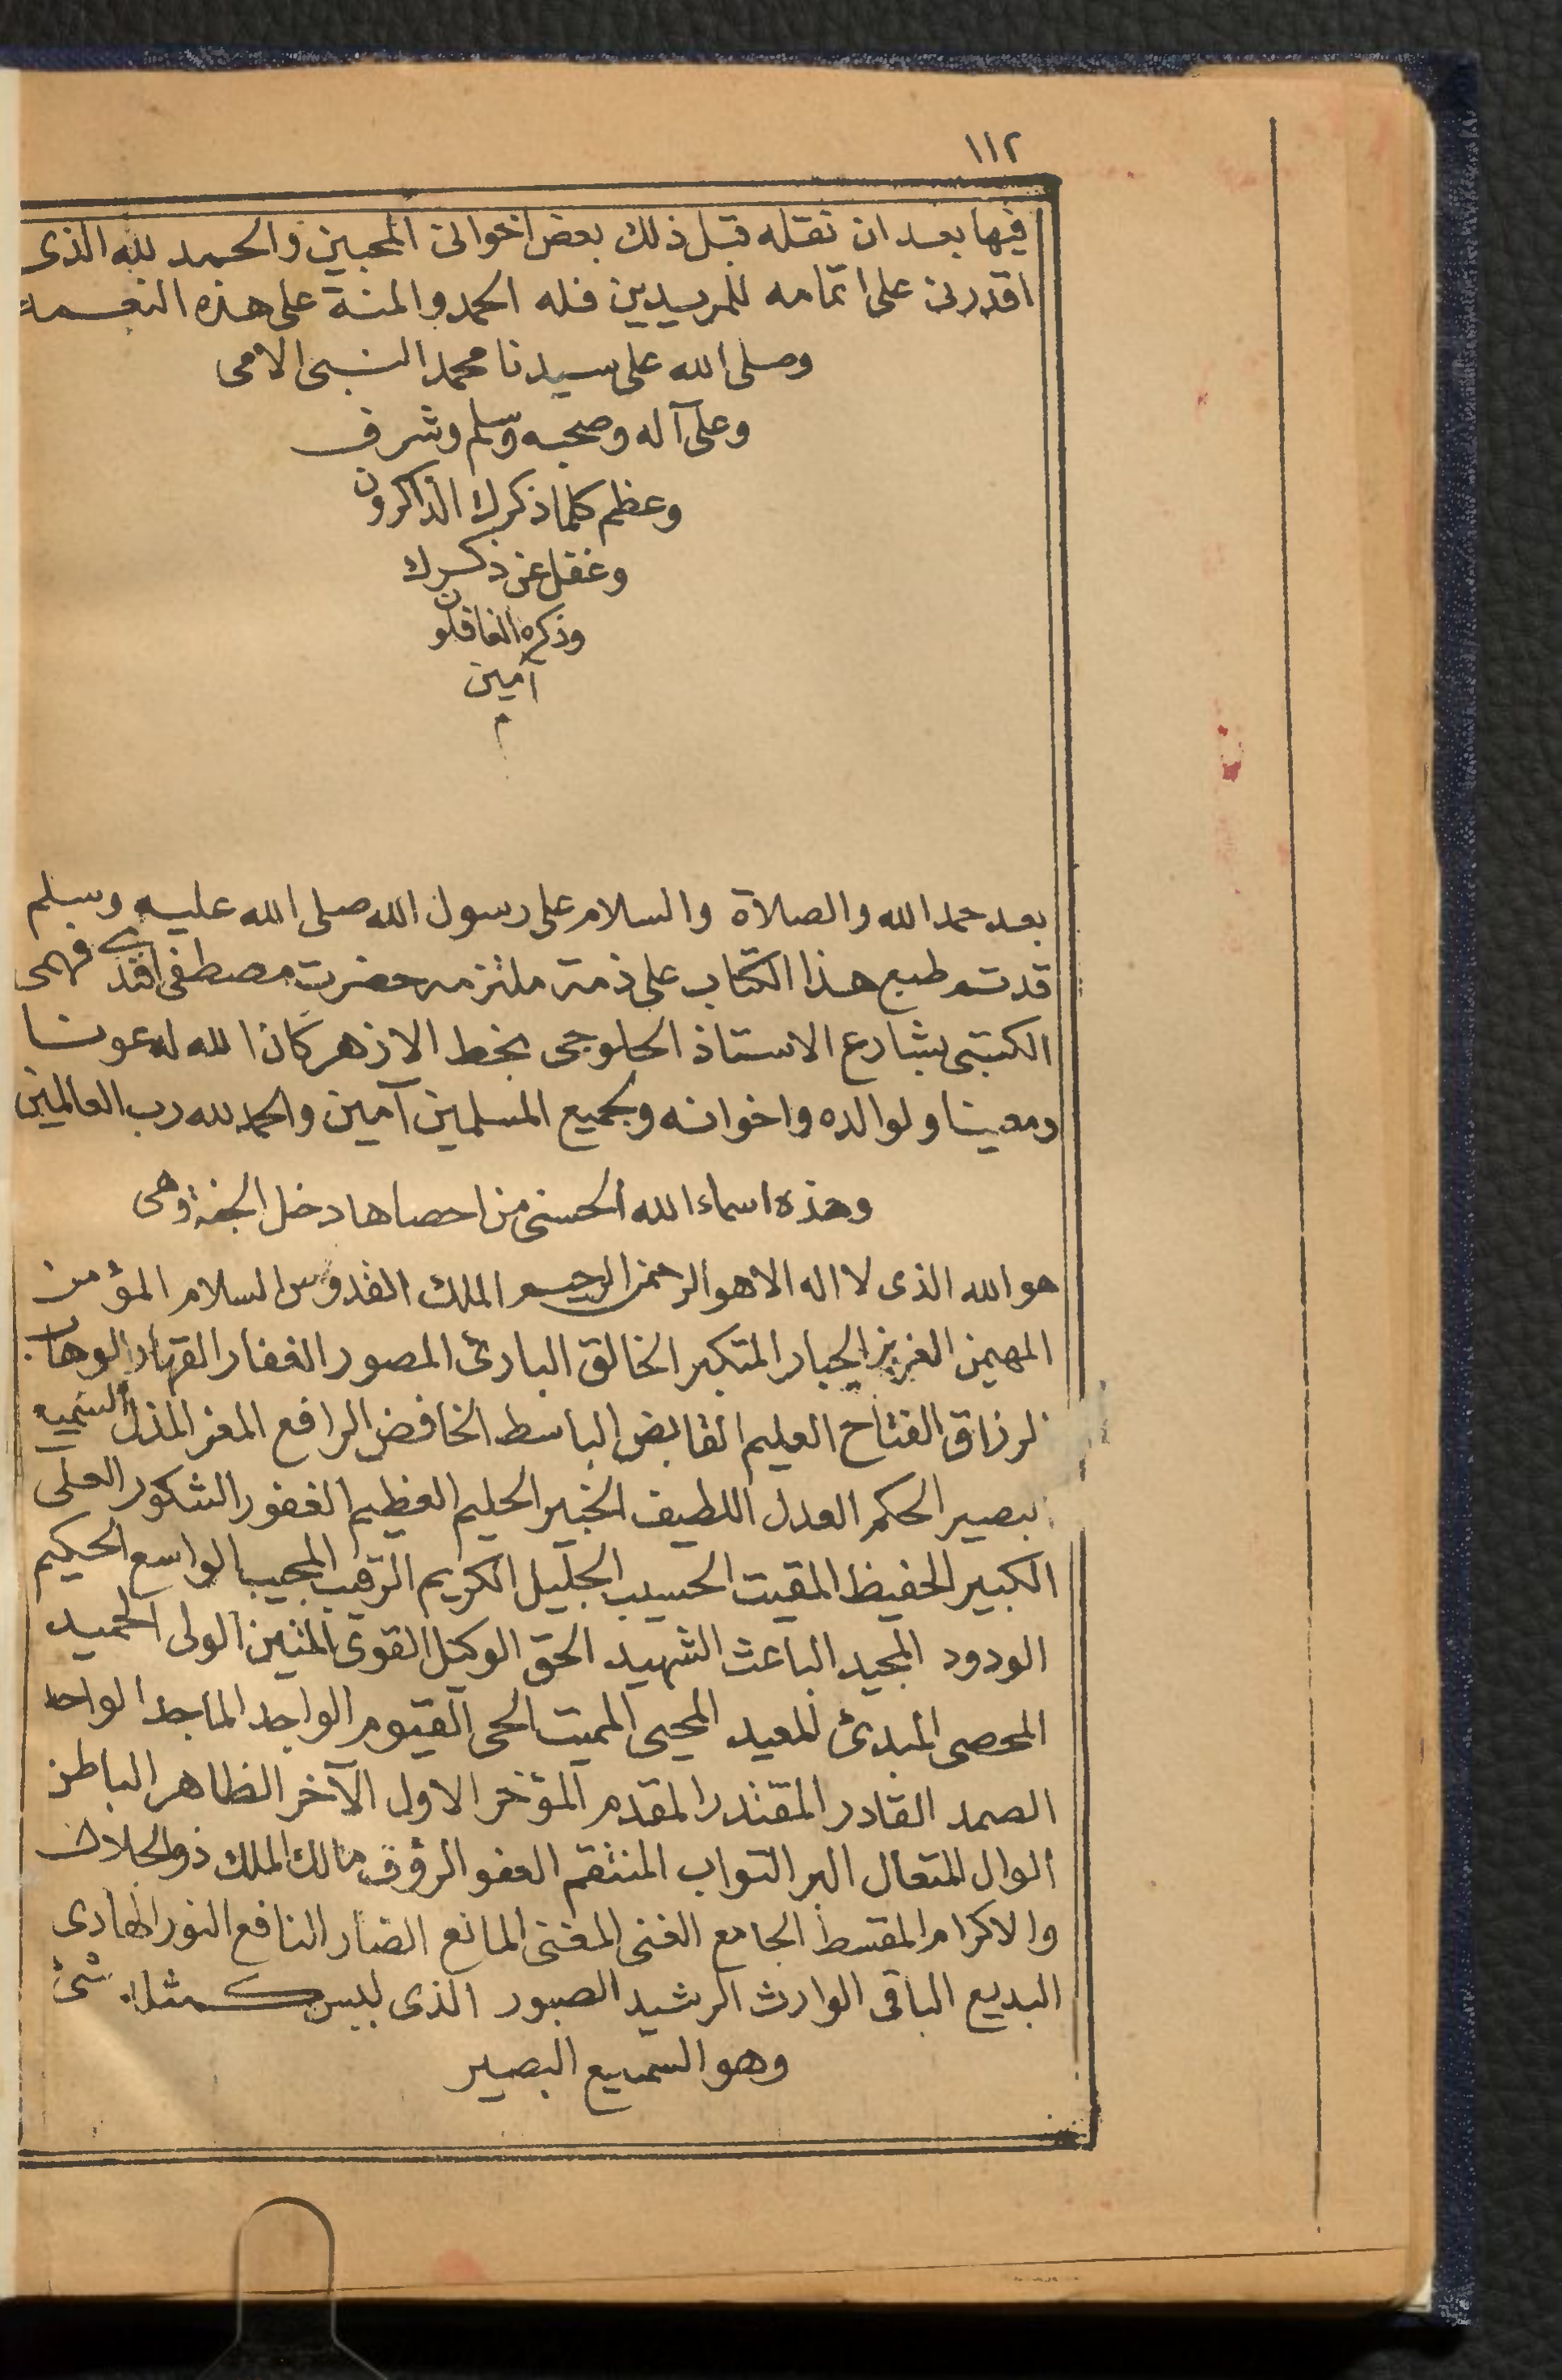 ١١٢
فيها بعد ان نقله قبل ذلك بعض اخوانى المحبين والحمد لله الذى
اقدرنى على اتمامه للمريدين فله الحمد والمنة على هذه النعمة
وصلى الله على سيدنا محمد النبى الامى
وعلى آله وصحبه وسلم وشرف
وعظم كلما ذكرك الذاكرون
وغفل عن ذكرك
وذكره الغافلون
آمين
م
بعد حمد الله والصلاة والسلام على رسول الله صلى الله عليه وسلم
قد تم طبع هذا الكتاب على ذمة ملتزمه حضرت مصطفى افندى فهمى
الكتبى بشارع الاستاذ الحلوجى بخط الازهر كان الله له عونا
ومعينا ولوالده واخوانه ولجميع المسلمين آمين والحمد لله رب العالمين
وهذه اسماء الله الحسنى من احصاها دخل الجنة وهى
هو الله الذى لا اله الا هو الرحمن الرحيم الملك القدوس السلام المؤمن
المهيمن العزيز الجبار المتكبر الخالق البارئ المصور الغفار القهار الوهاب
الرزاق الفتاح العليم القابض الباسط الخافض الرافع المعز المذل السميع
البصير الحكم العدل اللطيف الخبير الحليم العظيم الغفور الشكور العلى
الكبير الحفيظ المقيت الحسيب الجليل الكريم الرقيب المجيب الواسع الحكيم
الودود المجيد الباعث الشهيد الحق الوكيل القوى المتين الولى الحميد
المحصى المبدئ المعيد المحيى المميت الحى القيوم الواجد الماجد الواحد
الصمد القادر المقتدر المقدم المؤخر الاول الآخر الظاهر الباطن
الوال المتعال البر التواب المنتقم العفو الرؤف مالك الملك ذو الجلال
والاكرام المقسط الجامع الغنى المغنى المانع الضار النافع النور الهادى
البديع الباقى الوارث الرشيد الصبور الذى ليس كمثله شئ
وهو السميع البصير